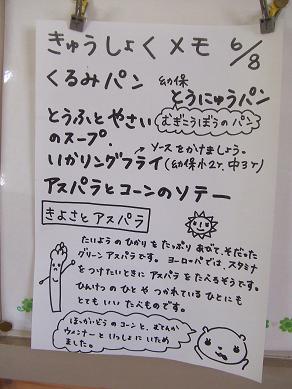 きゅうしょくメモ 6/8
くるみパン 幼保 とうにゅうパン
むぎこうぼうのパン
とうふとやさい
のスープ.
ソースをかけましょう。
いかリングフライ (幼保小2ヶ, 中3ヶ)
アスパラとコーンのソテー
きよさとアスパラ
たいようのひかりをたっぷりあびて、そだった
グリーンアスパラです。ヨーロッパでは、スタミナ
をつけたいときにアスパラをたべるそうです。
ひんけつのひとやつかれているひとにも
とてもいいたべものです。
ほっかいどうのコーンと、むてんか
ウインナーといっしょにいため
ました。